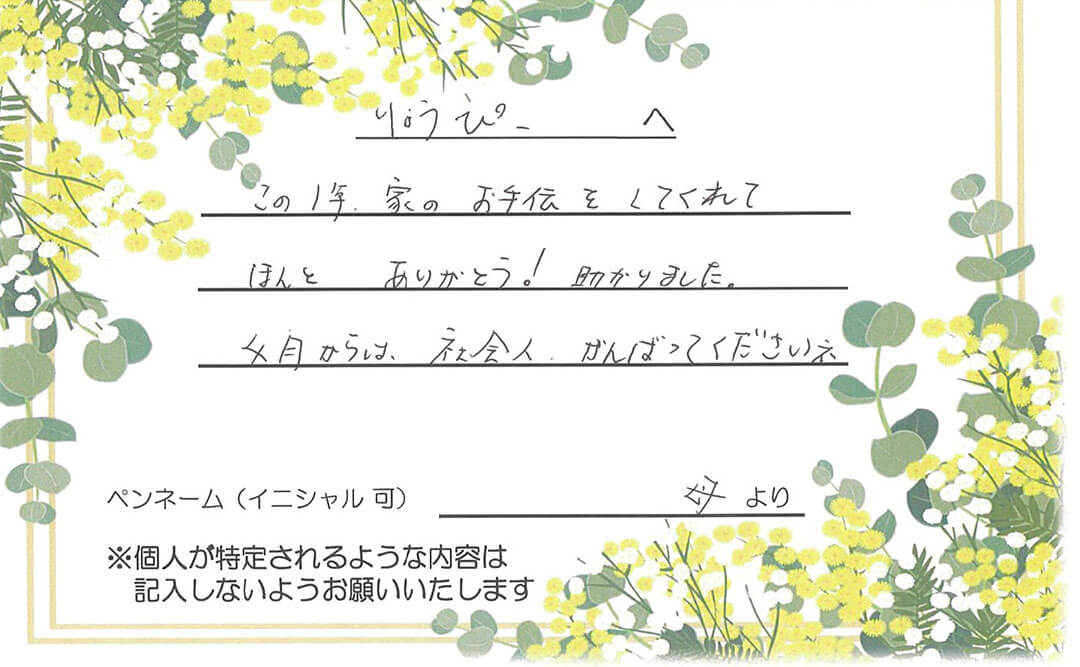 りょうぴー へ
この1年.家のお手伝をしてくれて
ほんと ありがとう!助かりました。
4月からは、社会人.がんばってくださいネ
ペンネーム（イニシャル 可） 母 より
※個人が特定されるような内容は
記入しないようお願いいたします